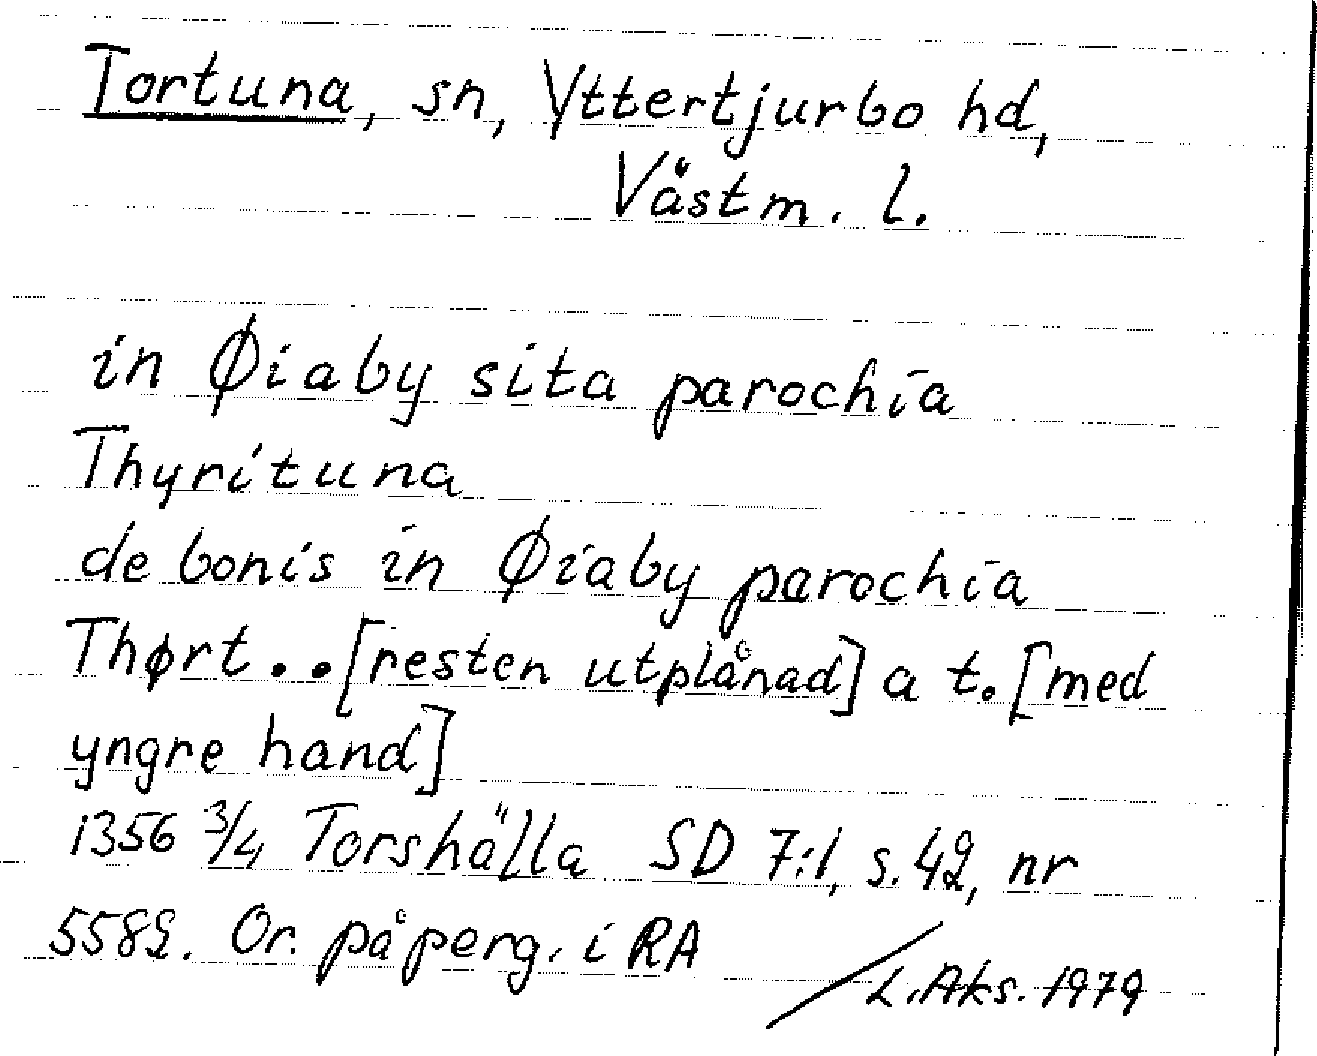 Tortuna, sn, Yttertjurbo hd,
Västm. l.
in Øiaby sita parochia
Thyrituna
de bonis in Øiaby parochia
Thørt..[resten utplånad] a t. [med
yngre hand]
1356 3/4 Torshälla SD 7:1, s. 42, nr
5582. Or. på perg. i RA
L. Aks. 1979